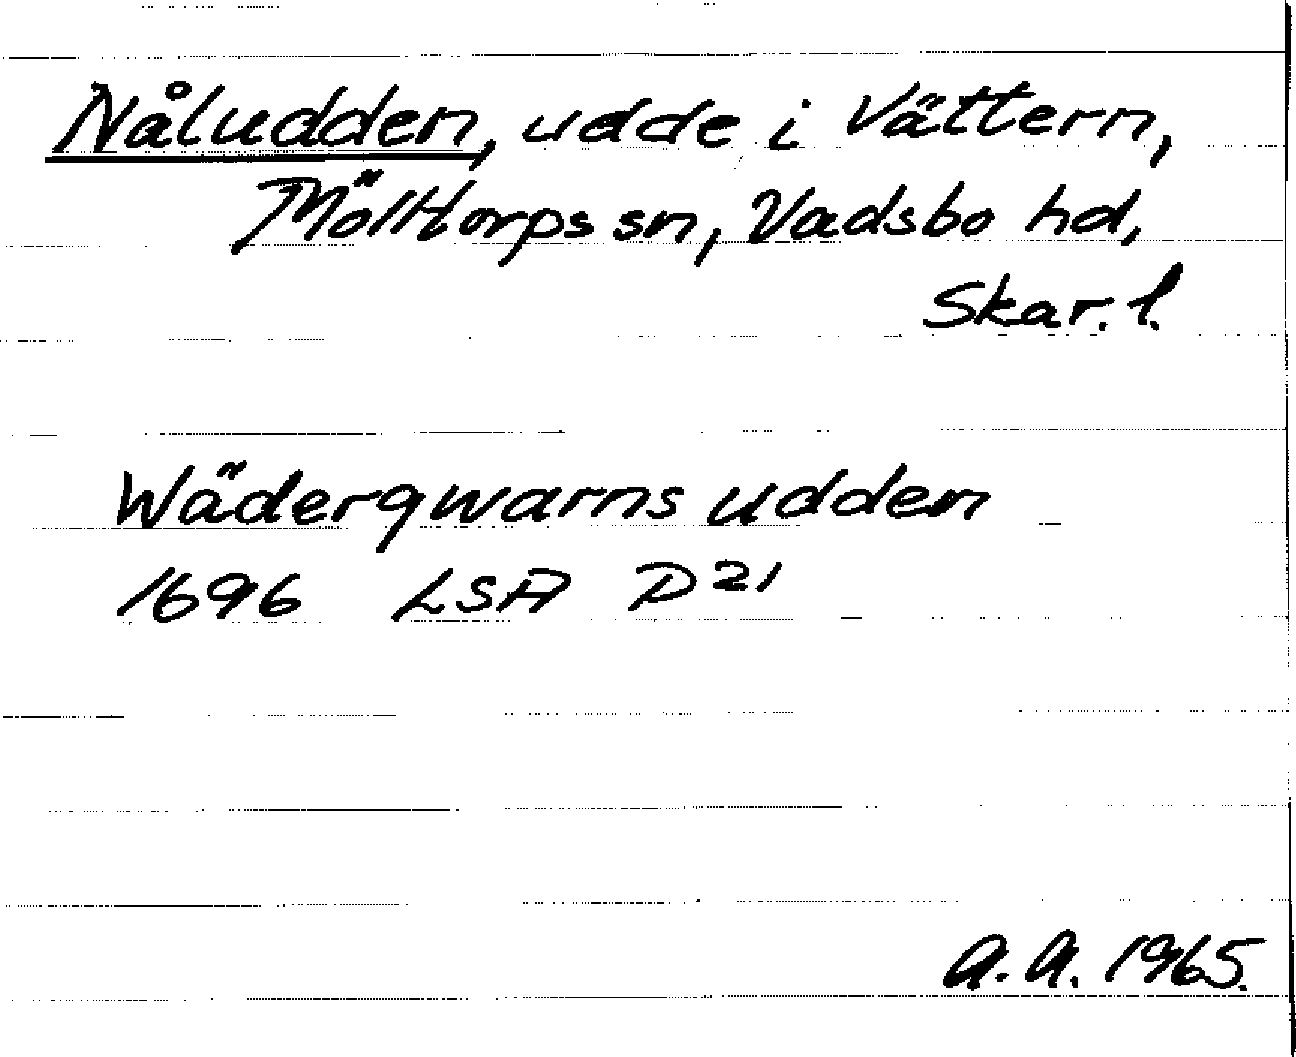 Nåludden, udde i Vättern,
Mölltorps sn, Vadsbo hd,
Skar. l.
Wäderqwarns udden
1696 LSA P 21
A.A. 1965.